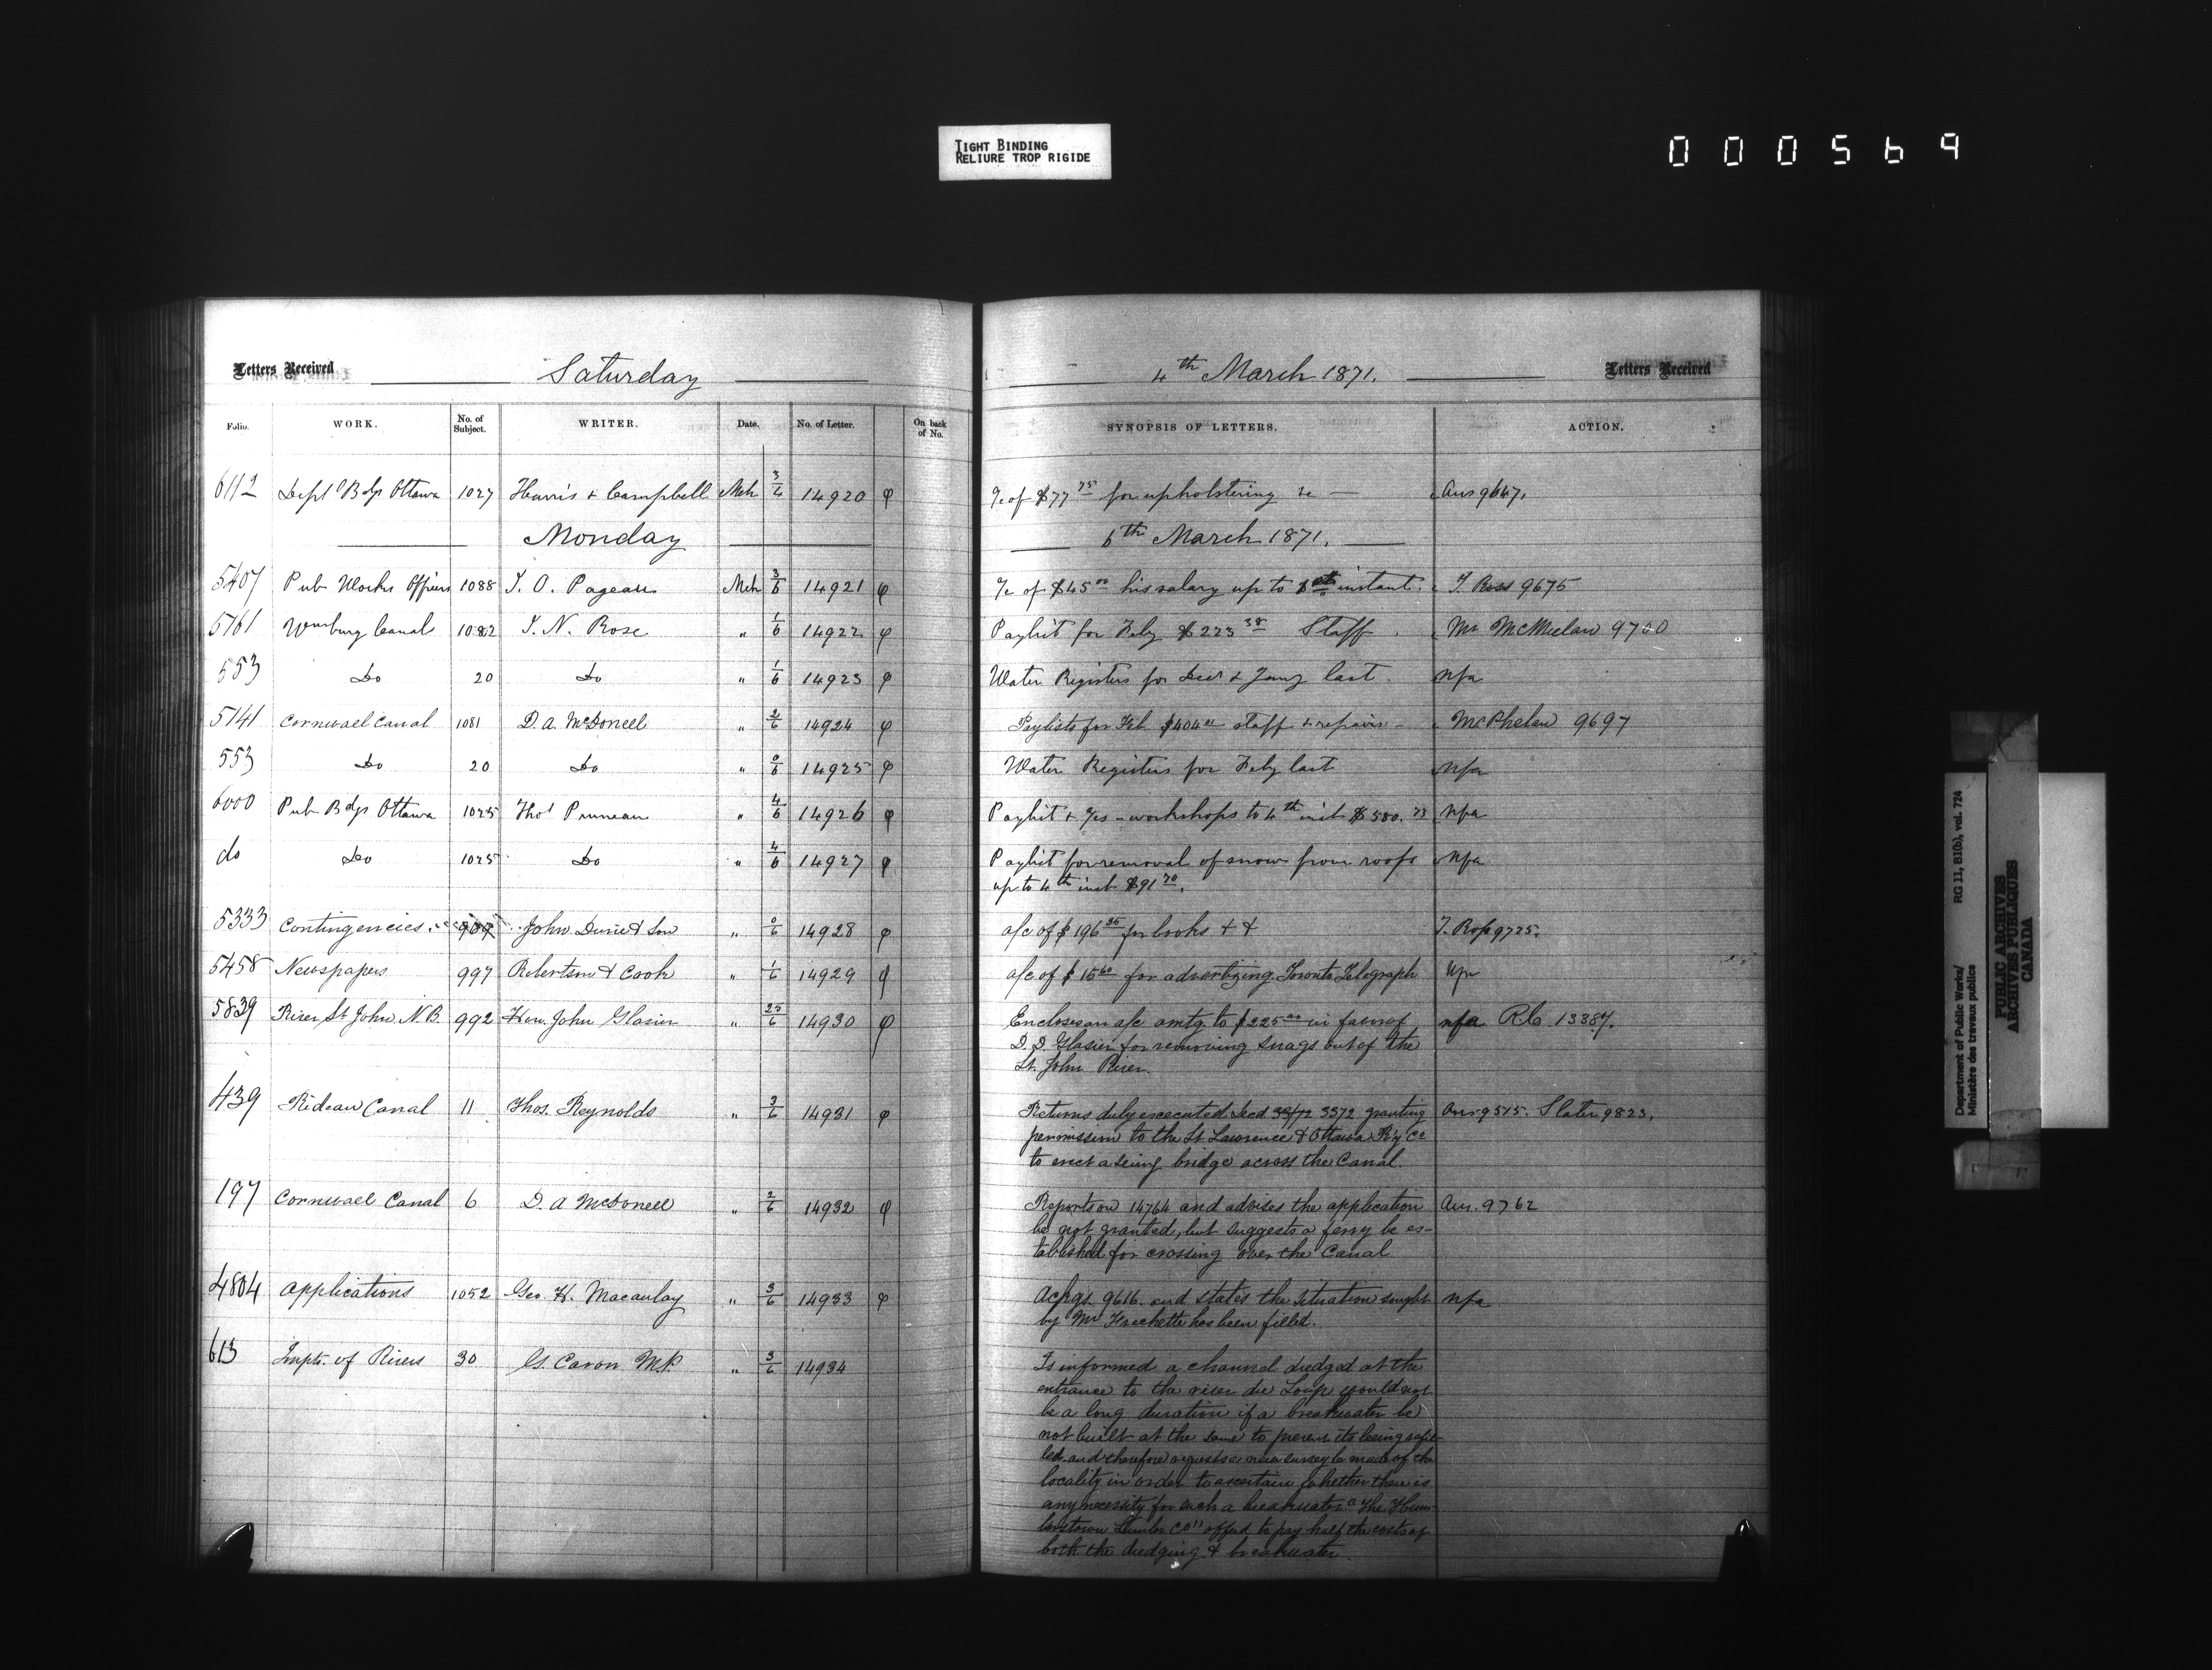 TIGHT BINDING
RELIURE TROP RIGIDE
000569
Letters Received Saturday 4th March 1871. Letters Received
Folio. WORK. No. of Subject. WRITER. Date. No. of Letter. On back of No. SYNOPSIS OF LETTERS. ACTION.
6112 Deptl Bdgs Ottawa 1027 Harris & Campbell Mch 3/4 14920 φ a/c of $77 75 for upholstering &c — Ans 9647.
Monday 6th March 1871.
5407 Pub Works Officers 1088 T. O. Pageau Mch 3/6 14921 φ a/c of $45 00 his salary up to instant. T. Ross 9675
5761 Wmsburg Canals 1082 I. N. Rose " 1/6 14922 φ Paylist for Feby $223 38 Staff. Mr McMielaw 9700
553 Do 20 Do " 1/6 14923 φ Water Registers for Decr & Jany last. nfa
5141 Cornwall Canal 1081 D. A. McDonell " 2/6 14924 φ Paylists for Feb. $404 staff & repairs — McPhelan 9697
553 Do 20 Do " 0/6 14925 φ Water Registers for Feby last nfa
6000 Pub Bdgs Ottawa 1025 Thos Pruneau " 4/6 14926 φ Paylist & a/cs - workshops to 4th inst $580. 73 nfa
do Do 1025 Do " 4/6 14927 φ Paylist for removal of snow from roofs nfa
up to 4th inst $91 70.
5333 Contingencies. 909 John Durie & Son " 0/6 14928 φ a/c of $196 35 for books & & T. Ross 9725.
5458 Newspapers 997 Robertson & Cook " 1/6 14929 φ a/c of $15 60 for advertizing Toronto Telegraph
5839 River St John, N.B. 992 Hon. John Glasier " 25/6 14930 φ Encloses an a/c amtg to $225 00 in favor of nfa R.C. 13387.
D. D. Glasier for removing snags out of the
St. John River.
439 Rideau Canal 11 Thos. Reynolds " 3/6 14931 φ Returns duly executed Deed 33/72 3372 granting Ans 9515. Slater 9823.
permission to the St Lawrence & Ottawa R'y Co
to erect a swing bridge across the Canal.
197 Cornwall Canal 6 D. A McDonell " 2/6 14932 φ Reports on 14764 and advises the application Ans. 9762
be not granted, but suggests a ferry be es-
tablished for crossing over the Canal
4804 Applications 1052 Geo. H. Macaulay " 3/6 14933 φ Ackgs. 9616. and states the situation sought nfa
by Mr Frechette has been filled.
613 Impts. of Rivers 30 G. Caron M.P. " 3/6 14934 Is informed a channel dredged at the
entrance to the river du Loup would not
be a long duration if a breakwater be
not built at the same to prevent its being refil-
led. and therefore requests a new survey be made of the
locality in order to ascertain whether there is
any necessity for such a breakwater. "The Hun-
terstown Lumber Co" offered to pay half the costs of
both the dredging & breakwater.
Department of Public Works/ RG 11, B1(b), vol. 724
Ministère des travaux publics
PUBLIC ARCHIVES
ARCHIVES PUBLIQUES
CANADA